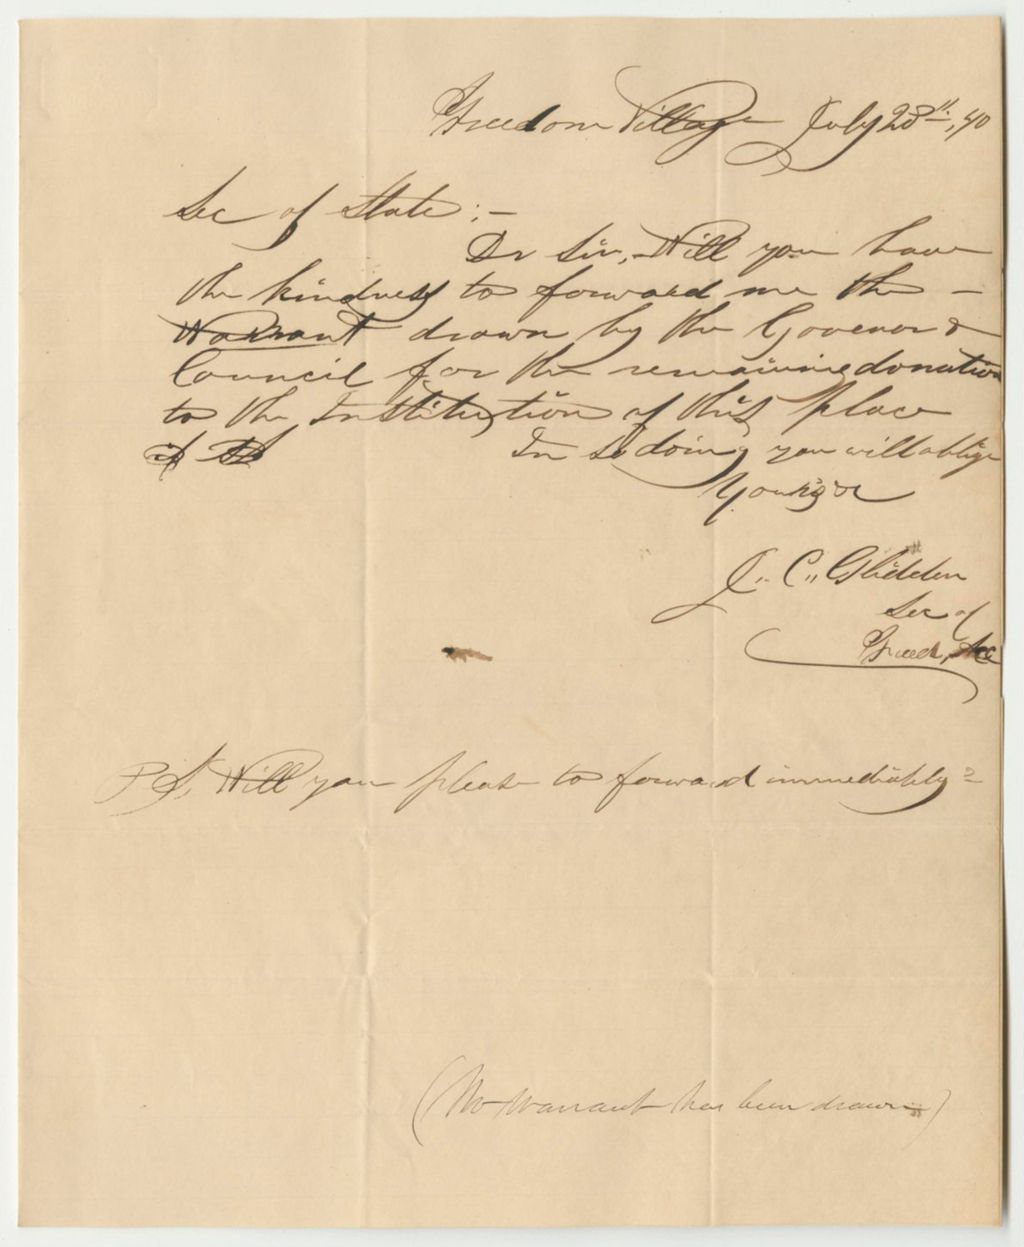 Freedom Village July 28th, 40
Sec of State :-
Dr Sir, Will you have
the kindness to forward me the -
Warrant drawn by the Governor &
Council for the remaining donation
to the Institution of this place
In so doing you will oblige
Yours &c
J. C. Glidden
Sec of
P. S. Will you please to forward immediately?
(No Warrant has been drawn)